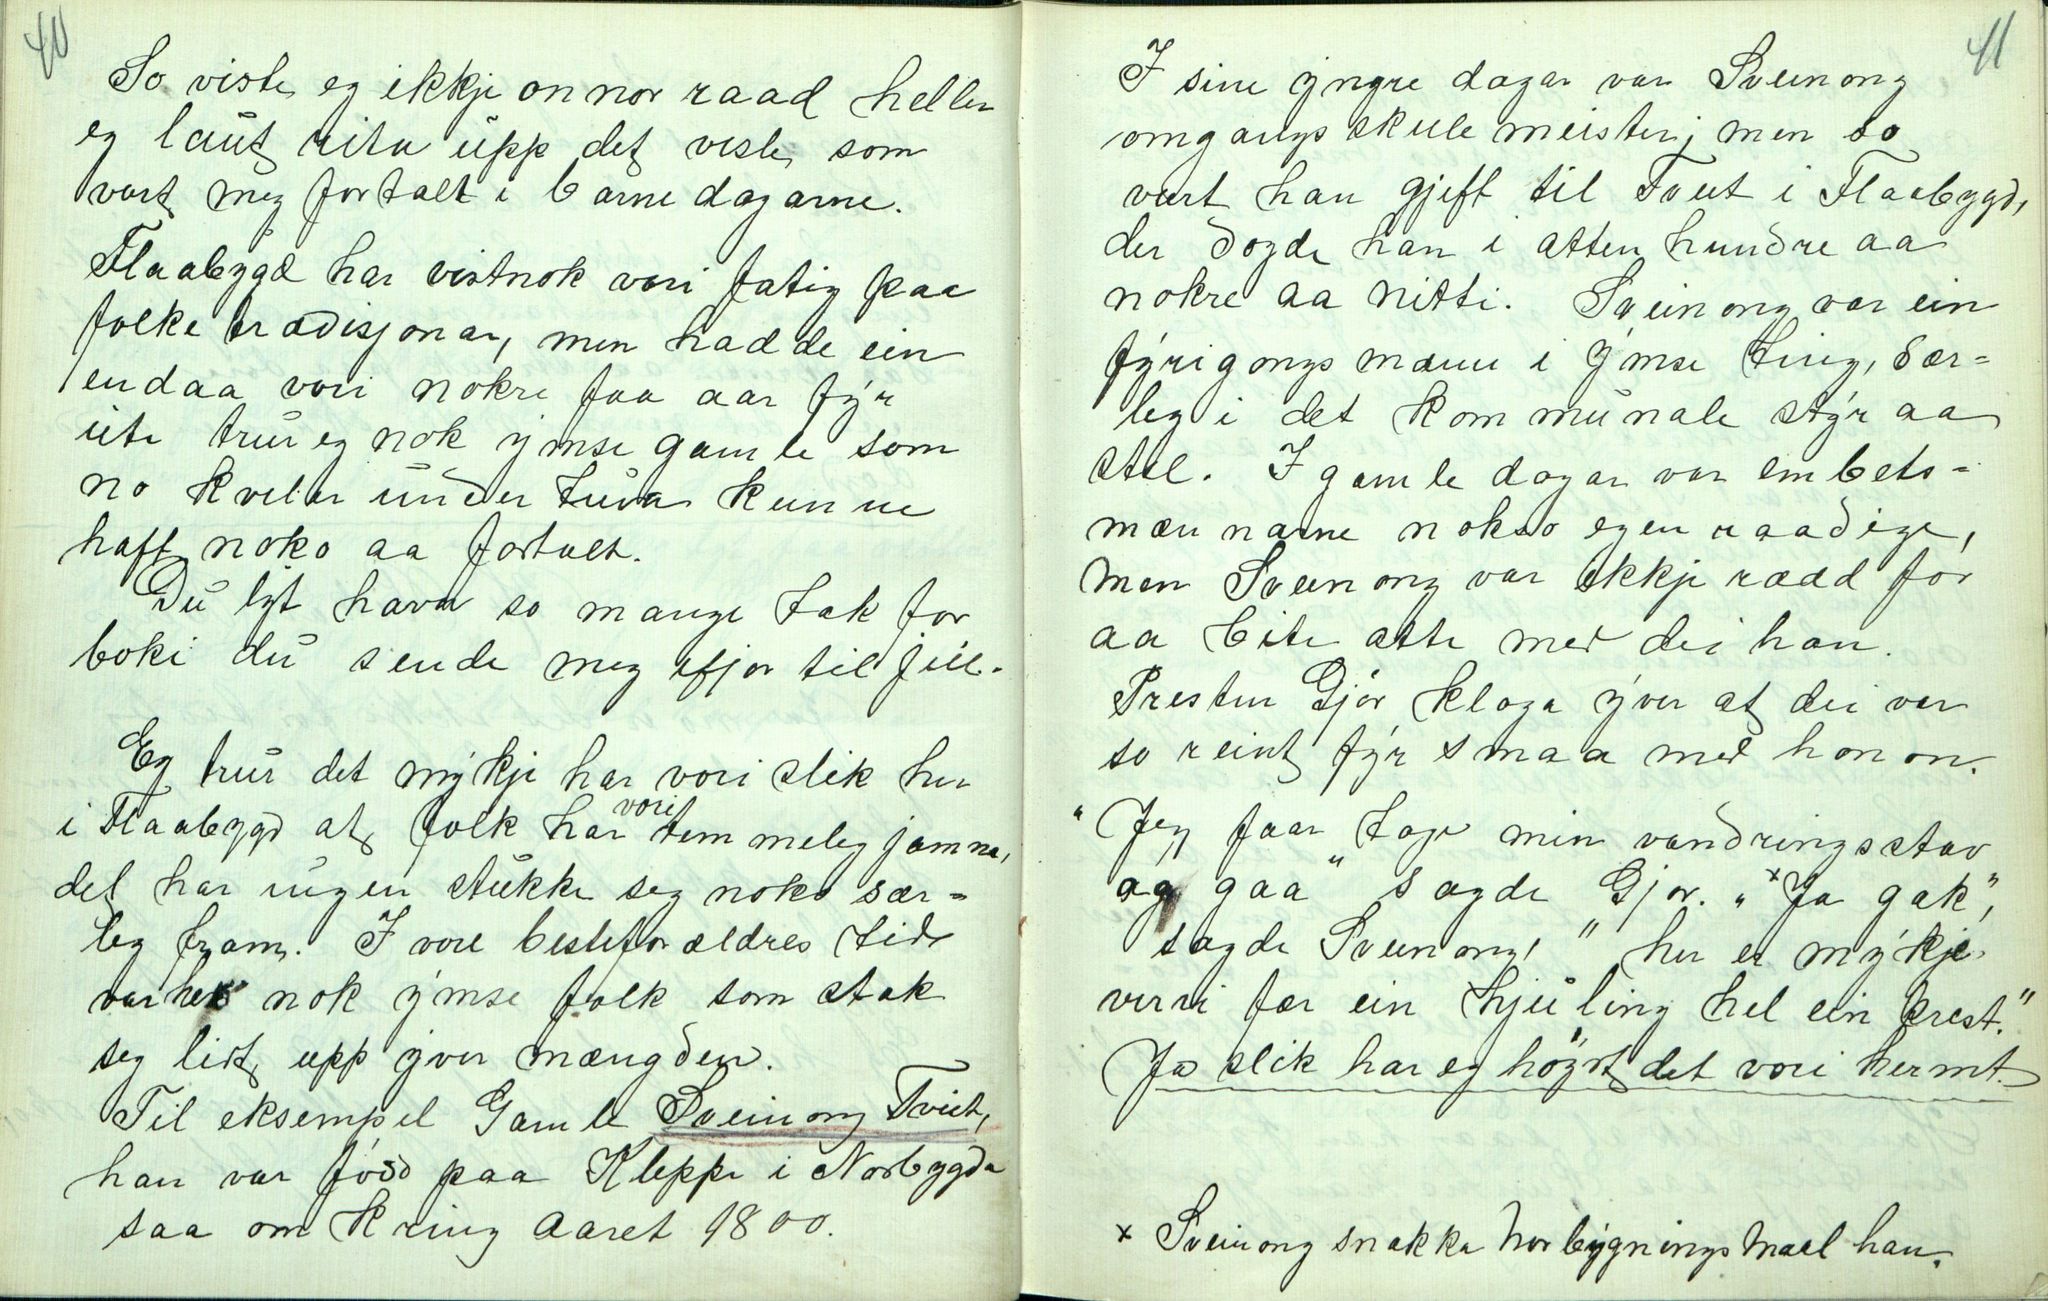 40
So viste eg ikkje onnor raad heller
eg laut rita upp det vesle som
vart meg fortalt i barnedagarne.
Flaabygd har vistnok vori fatig paa
folketradisjonar, men hadde ein
endaa vori nokre faa aar fyr
ute trur eg nok ymse gamle som
no kviler under tuva kunne
haft noko aa fortalt.
Du lyt hava so mange tak for
boki du sende meg ifjor til jul.
Eg trur det mykje har vori slik her
i Flaabygd at folk har vori temmeleg jamne,
det har ingen stukke seg noko sær-
leg fram. I vore besteforældres tid
var her nok ymse folk som stak
seg lit upp yver mængden.
Til eksempel Gamle Sveinong Tveit,
han var född paa Kleppe i Norbygda
saa omkring aaret 1800.
41
I sine yngre dagar var Sveinong
omgangsskulemeister, men so
vart han gjift til Tveit i Flaabygd,
der döyde han i atten hundre aa
nokre aa nitti. Sveinong var ein
fyrigongsmann i ymse ting, sær-
leg i det kommunale styr aa
stel. I gamle dagar var embets-
mænnarne nokso egenraadige,
men Sveinong var ikkje rædd for
aa bite atte med dei han.
Presten Gjör klaga yver at dei var
so reint fyr smaa med honom.
"Jeg faar tage min vandringsstav
og gaa" sagde Gjör. "x Ja gak",
sagde Sveinong, "her er mykje
verri før ein hjuling hel ein prest."
Ja slik har eg höyrt det vori hermt.
x Sveinong snakka Norbygningsmaal han.